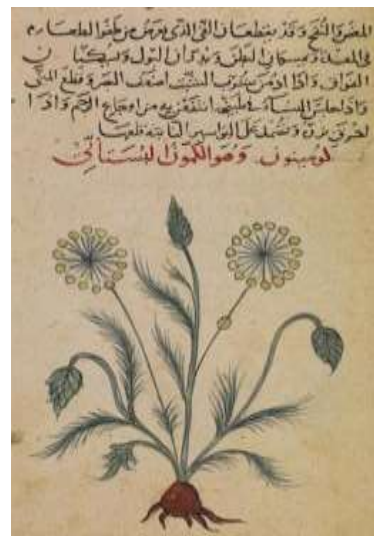 المغص والنفخ وقد يقطعان القئ الذى يعرض من طفوا الطعام
فى المعدة ويمسكان البطن ويدران البول ويسكنان
الفواق واذا ادمن شرب الشبت اضعف البصر وقطع المنى
واذا جلس النساء فى طبيخه انتفعن به من اوجاع الرحم واذا
احرق بزره وضمد على البواسير الناتيه قلعها
كومينون وهو الكمون البستانى